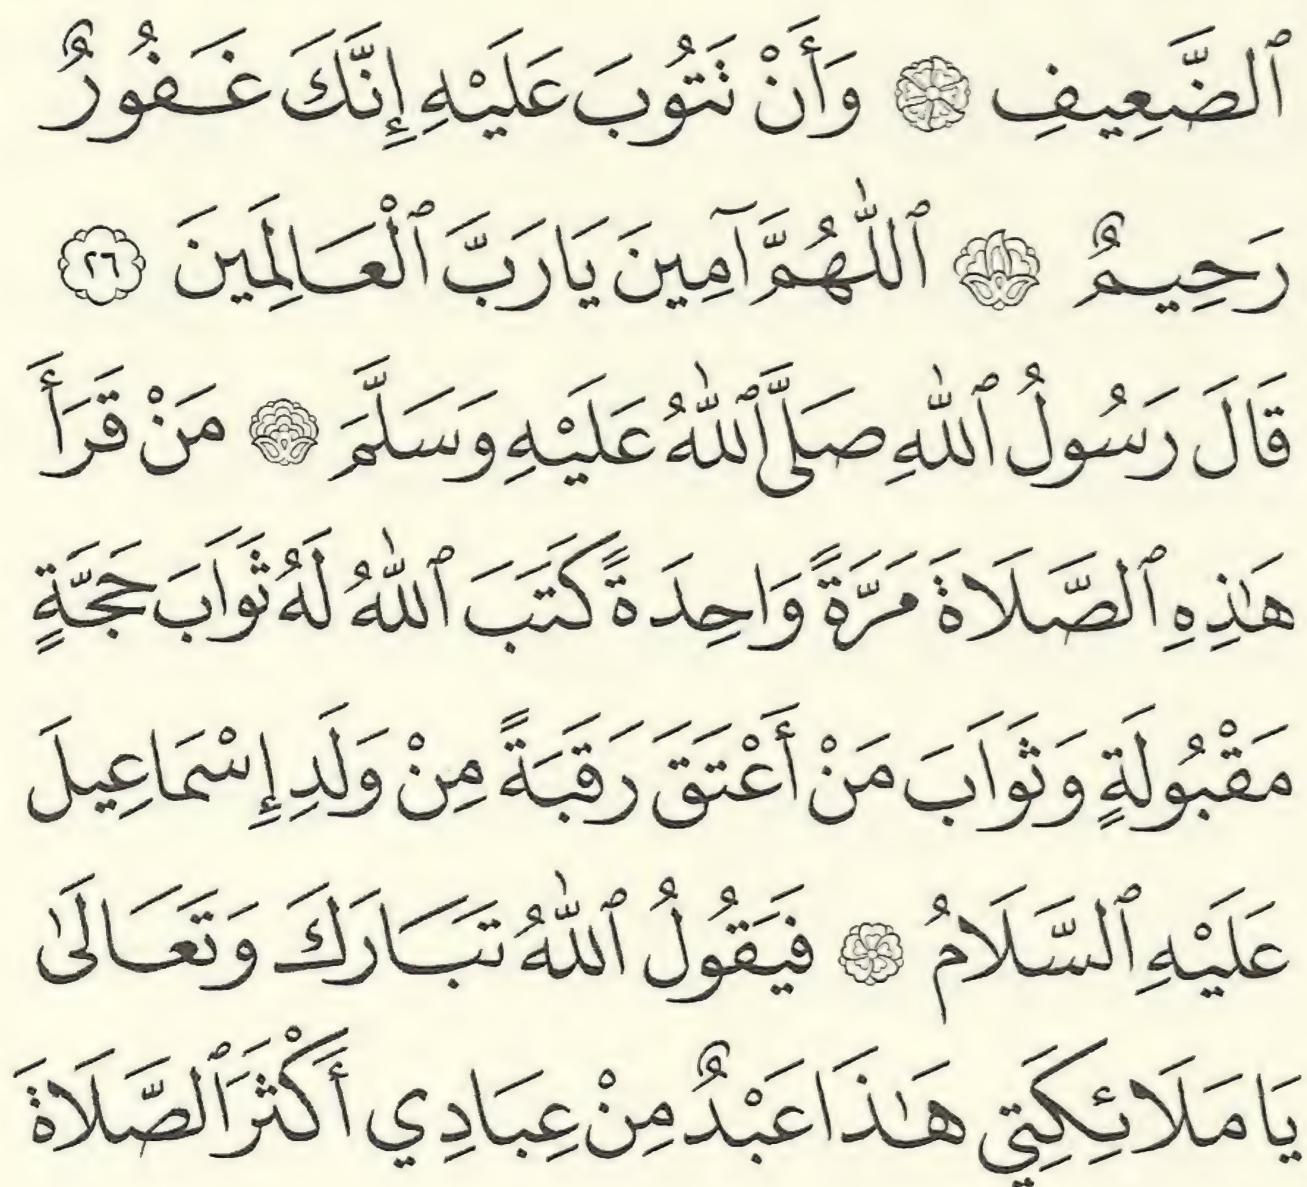 ٱلضَّعِيفِ ۞ وَأَنْ تَتُوبَ عَلَيْهِ إِنَّكَ غَفُورٌ
رَحِيمٌ ۞ ٱللّٰهُمَّ آمِينَ يَارَبَّ ٱلْعَالَمِينَ ﴿٢٦﴾
قَالَ رَسُولُ ٱللّٰهِ صَلَّى ٱللّٰهُ عَلَيْهِ وَسَلَّمَ ۞ مَنْ قَرَأَ
هٰذِهِ ٱلصَّلَاةَ مَرَّةً وَاحِدَةً كَتَبَ ٱللّٰهُ لَهُ ثَوَابَ حَجَّةٍ
مَقْبُولَةٍ وَثَوَابَ مَنْ أَعْتَقَ رَقَبَةً مِنْ وَلَدِ إِسْمَاعِيلَ
عَلَيْهِ ٱلسَّلَامُ ۞ فَيَقُولُ ٱللّٰهُ تَبَارَكَ وَتَعَالَىٰ
يَا مَلَائِكَتِي هٰذَا عَبْدٌ مِنْ عِبَادِي أَكْثَرَ ٱلصَّلَاةَ